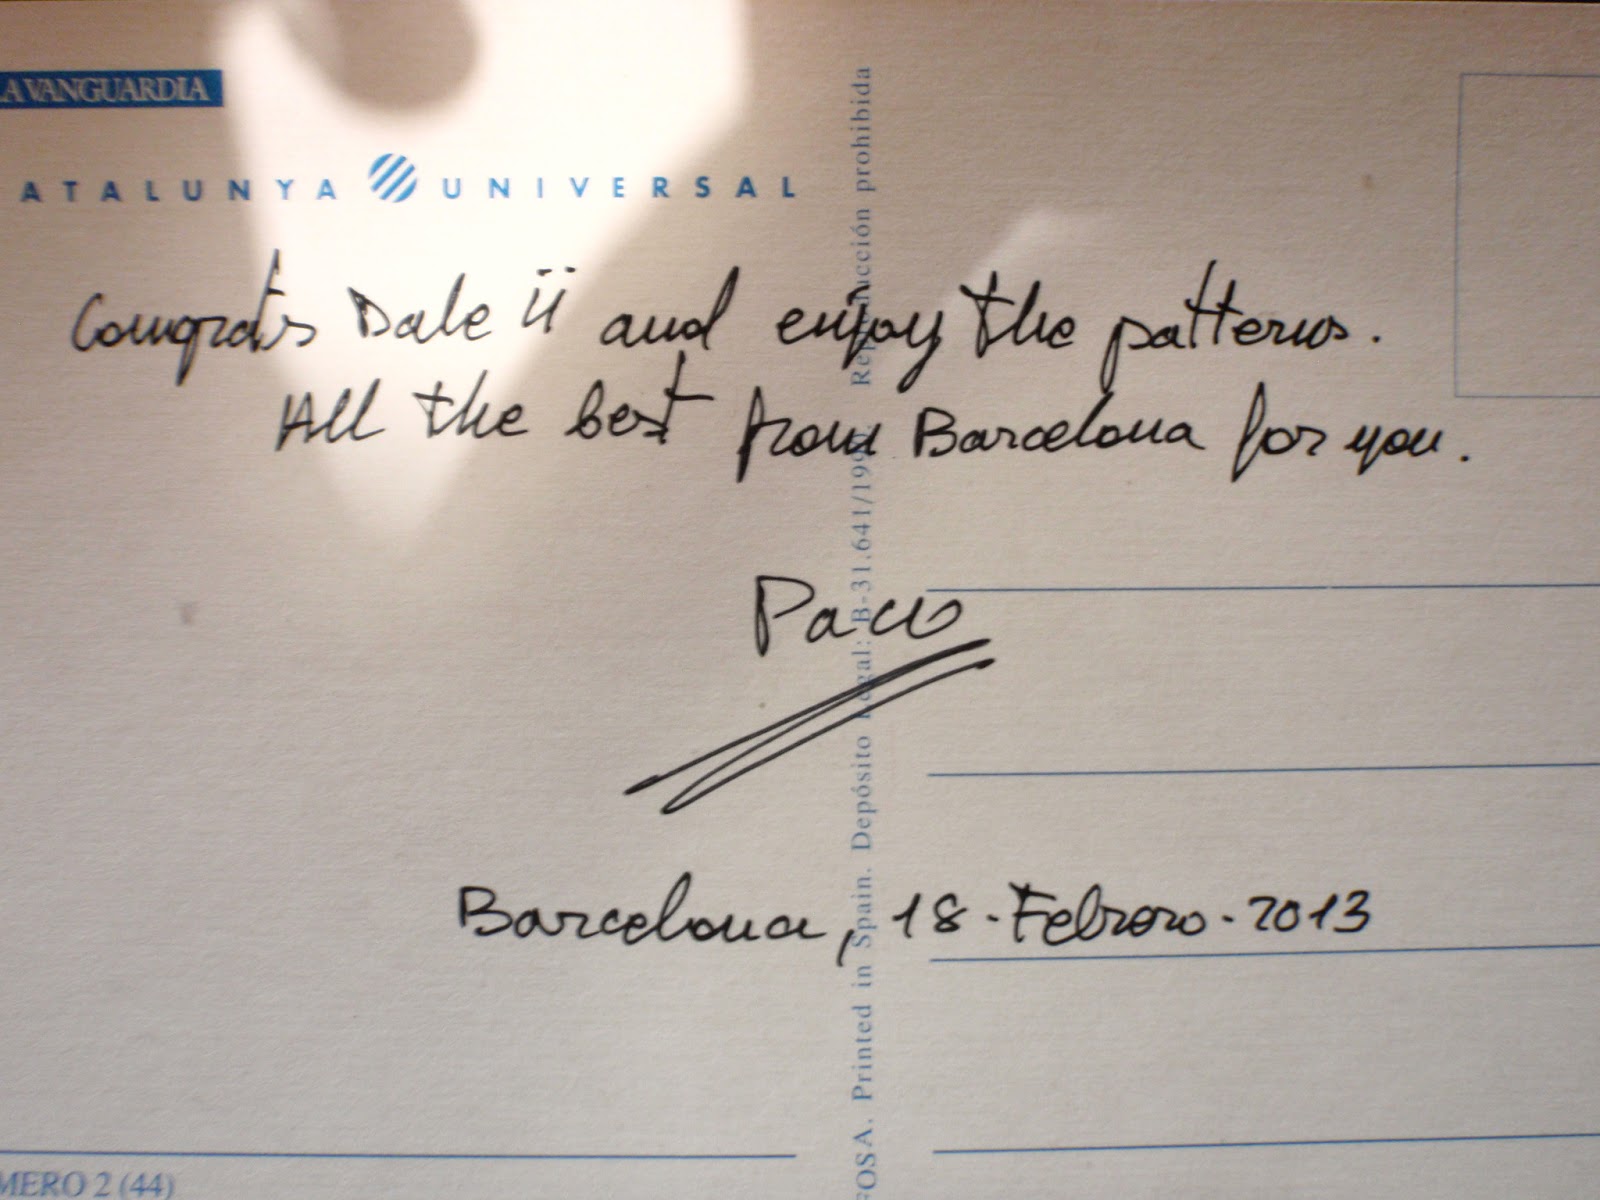 LA VANGUARDIA
ATALUNYA UNIVERSAL
Congrats Dale ¡¡ and enjoy the patterns.
All the best from Barcelona for you.
Paco
Barcelona, 18-Febrero-2013
MERO 2 (44)
FOSA. Printed in Spain. Depósito Legal: B-31.641/199 Reproducción prohibida